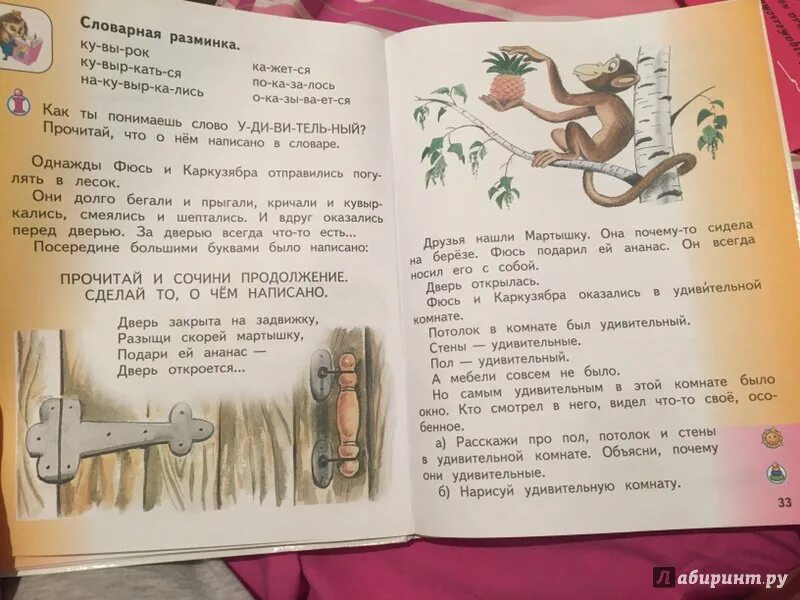 Словарная разминка.
ку-вы-рок
ку-выр-кать-ся
на-ку-выр-ка-лись
ка-жет-ся
по-ка-за-лось
о-ка-зы-ва-ет-ся
Как ты понимаешь слово У-ДИ-ВИ-ТЕЛЬ-НЫЙ?
Прочитай, что о нём написано в словаре.
Однажды Фюсь и Каркузябра отправились погу-
лять в лесок.
Они долго бегали и прыгали, кричали и кувыр-
кались, смеялись и шептались. И вдруг оказались
перед дверью. За дверью всегда что-то есть...
Посередине большими буквами было написано:
ПРОЧИТАЙ И СОЧИНИ ПРОДОЛЖЕНИЕ.
СДЕЛАЙ ТО, О ЧЁМ НАПИСАНО.
Дверь закрыта на задвижку,
Разыщи скорей мартышку,
Подари ей ананас —
Дверь откроется...
Друзья нашли Мартышку. Она почему-то сидела
на берёзе. Фюсь подарил ей ананас. Он всегда
носил его с собой.
Дверь открылась.
Фюсь и Каркузябра оказались в удивительной
комнате.
Потолок в комнате был удивительный.
Стены — удивительные.
Пол — удивительный.
А мебели совсем не было.
Но самым удивительным в этой комнате было
окно. Кто смотрел в него, видел что-то своё, осо-
бенное.
а) Расскажи про пол, потолок и стены
в удивительной комнате. Объясни, почему
они удивительные.
б) Нарисуй удивительную комнату.
33
Лабиринт.ру